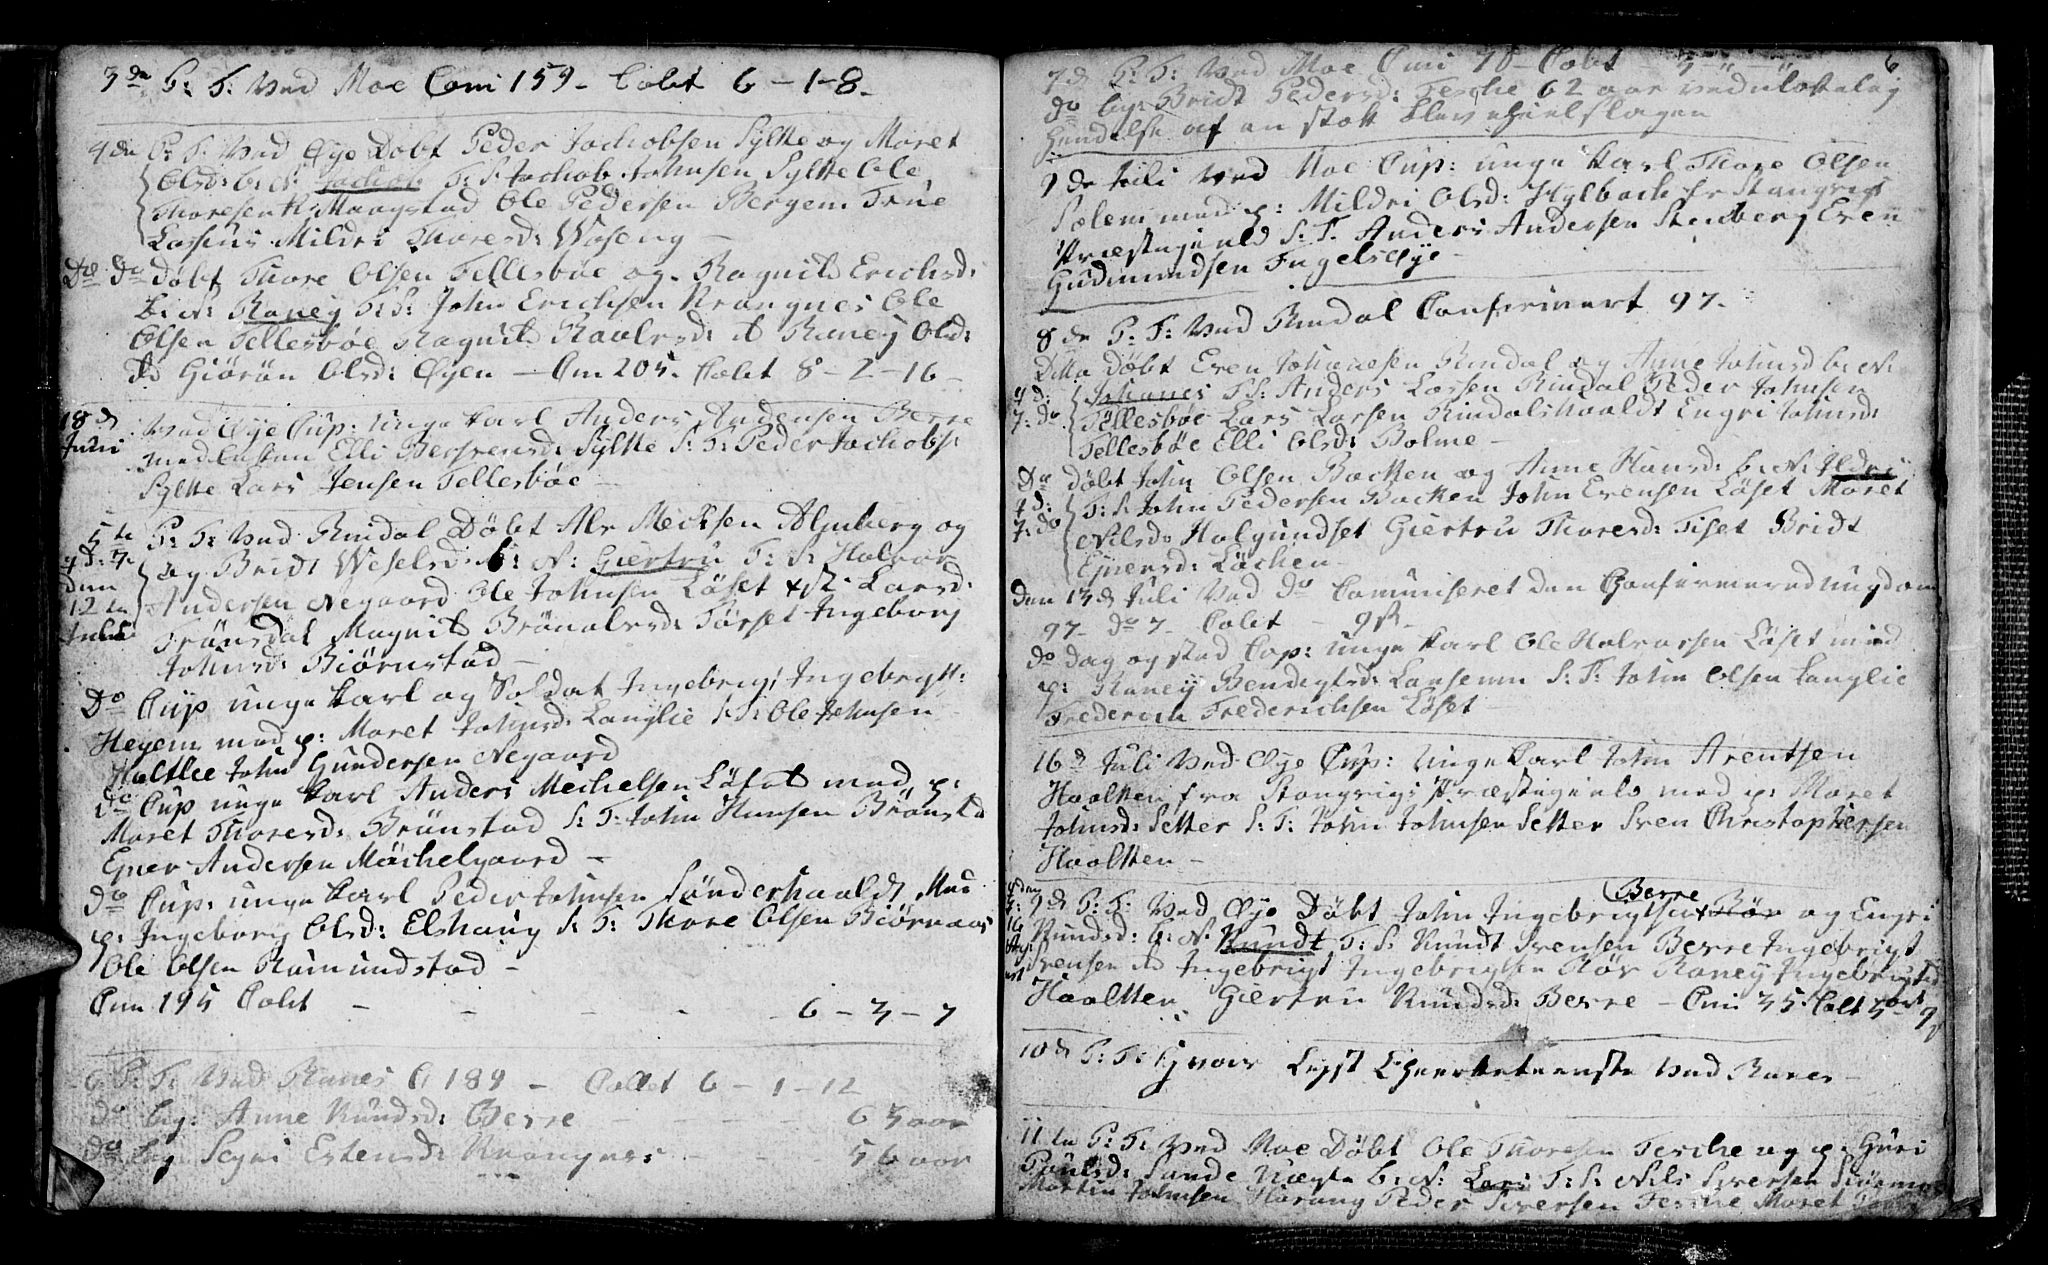 3de P: T: ved Moe Com 159 – Colet 6 – 1 – 8 –
4de P: T: ved Øye Døbt Peder Jachobsen Sylte og Maret
Olsd: b: N: Jachob T: S: Jachob Johnsen Sylte Ole
Thoresen Maagstad Ole Pedersen Bergem Trne
Larsens Mildri Thoresd: Woseng –
Do Do Døbt Thore Olsen Tellesbøe og Ragnild Erichsd:
b: N: Raney T: S: John Erichsen Krangnes Ole
Olsen Tellesbøe Ragnild Raneij Olsd:
Giørøn Olsd: Øyen – Om 205 – Colet 8 – 2 – 16 –
18 d ved Øye Cop: unge karl Anders Berre
Juli med Elli Sylte S: T: Peder Jachobs:
Sylte Lars Jensen Tellesbøe –
5te P: T: ved Rindal Døbt Alv Mecksen Almberg og
9 d: 7 og Bridt Weselsd: b: N: Giertru T: S: Halvor
den Andersen Negaard Ole Johnsen Løset Larsd:
12te Trønsdal Magnild Brønalvsd: Torset Ingeborg
Juli Johnsd: Biørnstad –
Do Cop unge karl og Soldat Ingebrigt Ingebrigt:
Heyem med p: Maret Johnsd: Langlie S: T: Ole Johnsen
Holtlee John Gundersen Negaard
do Cop unge karl Anders Mechelsen Løset med p:
Maret Thoresd: Brønstad S: T: John Hansen Brønstd
Ejner Andersen Møchelgaard –
do Cop: unge karl Peder Johnsen Sønderhaaldt
p: Ingeborg Olsd: Elshaug S: T: Thore Olsen Biørnaas
Ole Olsen Romundstad –
Om 195 Colet – – – – – 6 – 3 – 7
6 P: T: ved Ranes C 189 – Collet 6 – 1 – 12
do beg: Anne Knudsd: Berre – – – – 63 aar
do beg Segri Estensd: Krangnes – – 56 aar
6
7 d P: T: ved Moe Omi 78 – Colet – 3 –
do beg: Bridt Pedersd: Tesche 62 aar ved ulokkelig
hendelse af en stok blev ihielslagen
7 de Juli ved Moe Cop: unge karl Thore Olsen
Solem med p: Mildri Olsd: Hylbach fr Stangvigs
Præstegield S: T: Anders Andersen Stenberg Even
Gudmundsen Engelsøye –
8 de P: T: ved Rindal Confirmert 97 –
Ditto Døbt Even Johanesen Rindal og Anne Johnsd b: N:
9 d: Johanes T: S: Anders Larsen Rindal Peder Johnsen
7: do Tellesbøe Lars Larsen Rindalshaaldt Engri Johnsd:
Tellesbøe Elli Olsd: Bolme –
Do døbt John Olsen Backen og Anne Hansd: b: N: Ildri
9 d: T: S: John Pedersen Backen John Evensen Løset Maret
7: do Nilsd: Halgundset Giertru Thoresd: Tiset Bridt
Ejnersd: Løchen
den 13 d Juli ved do Comuniseret den Confirmered ungdom
97 – do 7 – Colet – 9 ß –
do dag og stad Cop: unge karl Ole Halvorsen Løset med
p: Raney Bendigtsd: Lansemm S: T: John Olsen Langlie
Frederich Frederichsen Løset –
16 d Juli ved Øye Cop: unge karl John Arentsen
Haaltten fra Stangvigs Præstegield med p: Maret
Johnsd: Setter S: T: John Johnsen Setter Sven Christophersen
Haaltten –
Berre
9 d P: T: ved Øye Døbt John Ingebrigtsen Røv og Engri
Knudsd: b: N: Knudt T: S: Knudt Svensen Berre Ingebrigt
Svensen do Ingebrigt Ingebrigtsen Røv Raney Ingebrigtsd
Haaltten Giertru Knudsd: Berre – Omi 35 – Collt 5 – 9
10 d P: T: Lyst ved Ranes –
11te P: T: ved Moe Døbt Ole Thoresen Tesche og p: Guri
Poulsd: Sunde Uægte b: N: Lars T: S: Nils Siversen
Martin Johnsen Harang Peder Siversen Tesche Maret